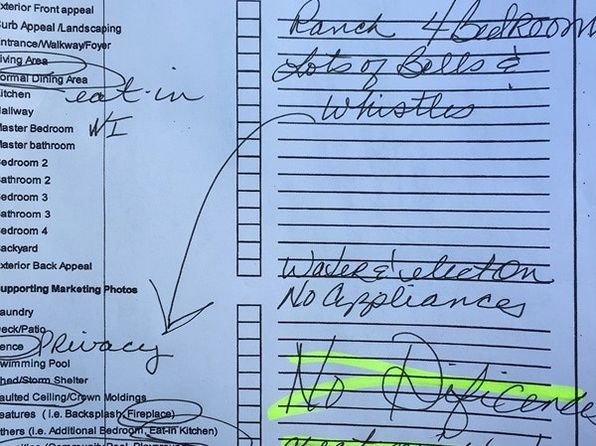 xterior Front appeal
urb Appeal /Landscaping
ntrance/Walkway/Foyer
iving Area
ormal Dining Area
itchen eat-in
allway
aster Bedroom WI
aster bathroom
edroom 2
athroom 2
edroom 3
athroom 3
edroom 4
ackyard
xterior Back Appeal
upporting Marketing Photos
aundry
eck/Patio
ence Privacy
wimming Pool
hed/Storm Shelter
aulted Ceiling/Crown Moldings
eatures ( i.e. Backsplash, Fireplace)
thers (i.e. Additional Bedroom, Eat-in Kitchen)
Ranch 4 Bedroom
Lots of Bells &
Whistles
Water & elect on
No Appliances
No Dificence